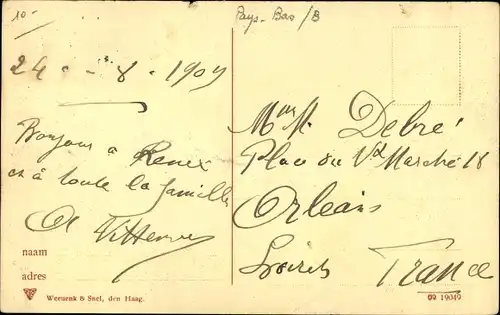 10-
Pays-Bas /B
24 - 8 - 1909
Bonjour a Renée
et à toute la famille
naam
adres
Weenenk & Snel, den Haag.
Debré
Place du Vd Marché 18
Orléans
Loiret
France
09 19049